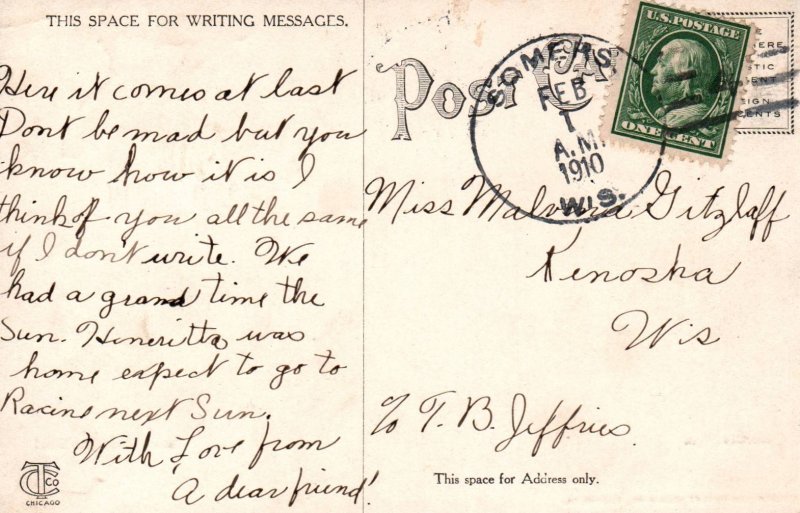 THIS SPACE FOR WRITING MESSAGES.
Here it comes at last
Dont be mad but you
know how it is I
think of you all the same
if I don't write. We
had a grand time the
Sun. Heneritta was
home expect to go to
Racine next Sun.
With Love from
A dear friend!
CTCo
CHICAGO
POST CA
SOMERS
FEB
1
A.M.
1910
WIS.
U.S. POSTAGE
ONE CENT
Miss Malvina Gitzlaff
Kenosha
Wis
c/o T. B. Jeffries.
This space for Address only.